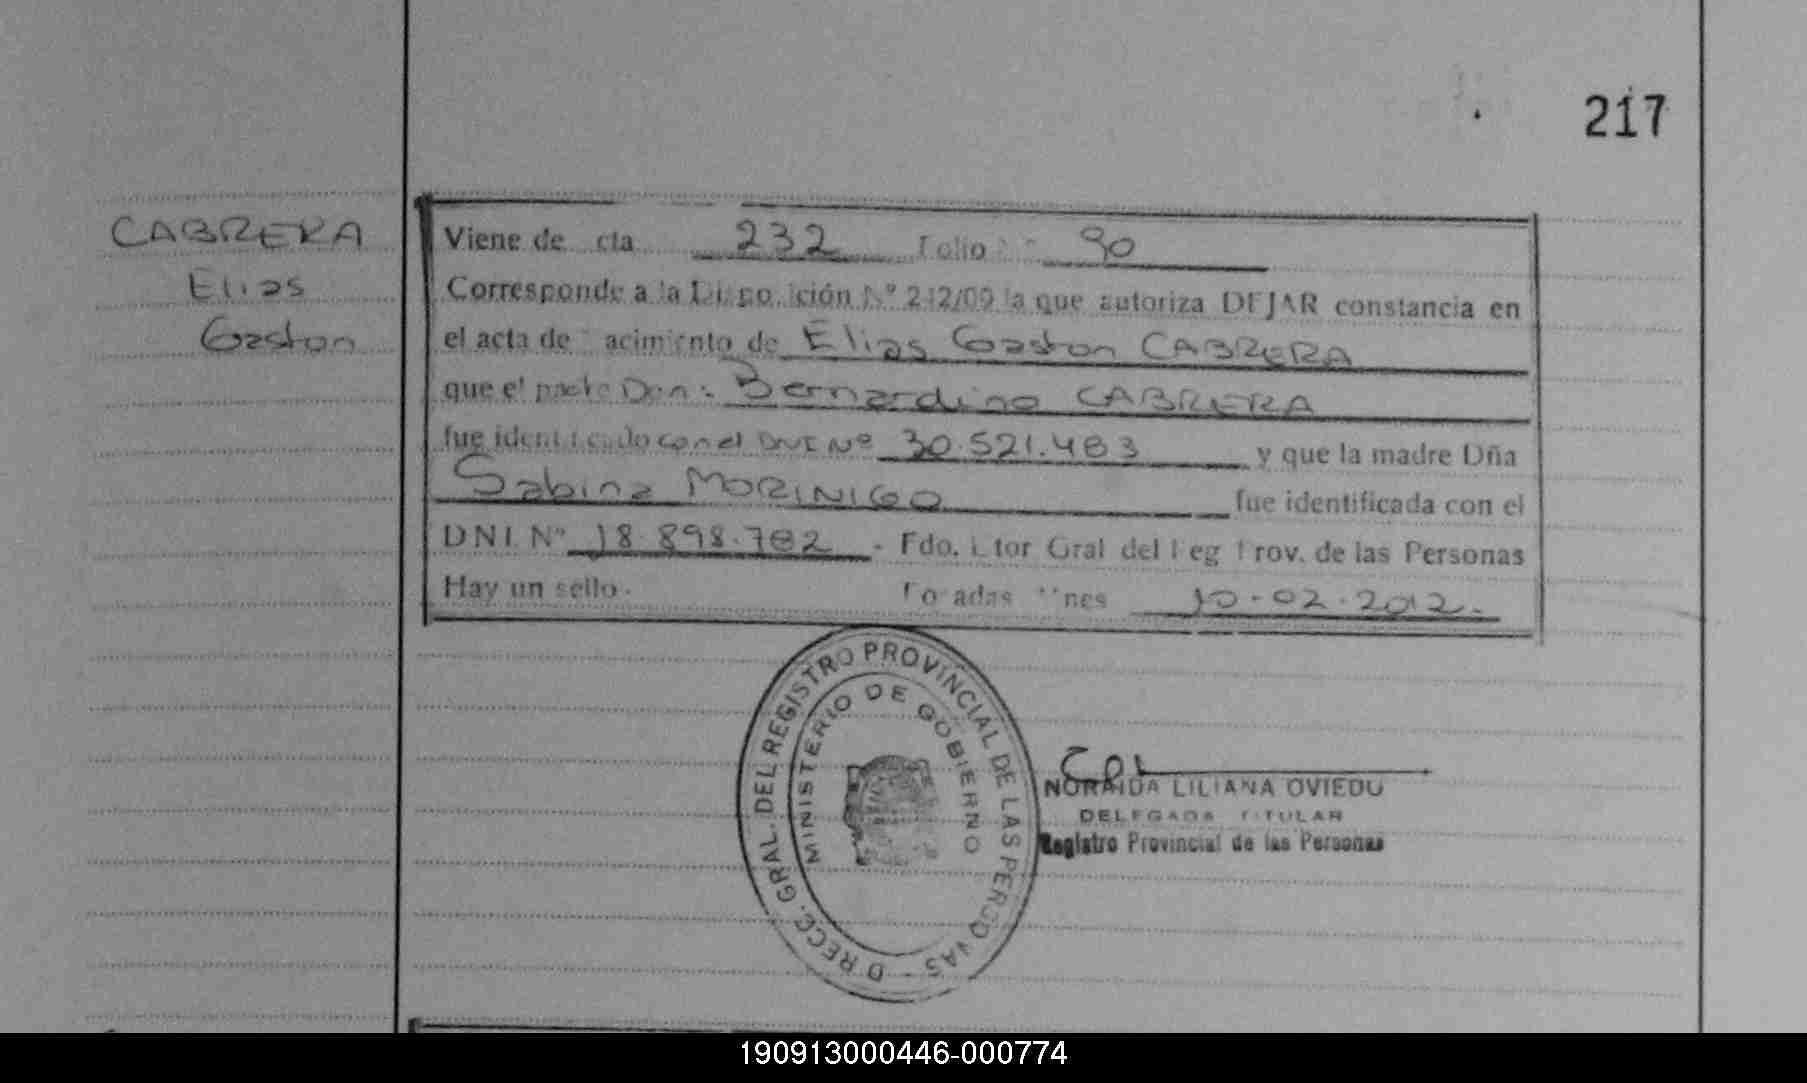 217
CABRERA
Elias
Gaston
Viene de cta 232 Folio: 90
Corresponde a la Disposición Nº 242/09 la que autoriza DEJAR constancia en
el acta de nacimiento de Elias Gaston CABRERA
que el padre Don: Bernardino CABRERA
fue identificado con el DNI Nº 30.521.483 y que la madre Dña
Sabina MORINIGO fue identificada con el
DNI. Nº 18.898.782 - Fdo. Dtor Gral del Reg Prov. de las Personas
Hay un sello. Tomadas 10-02-2012.
DIRECC. GRAL. DEL REGISTRO PROVINCIAL DE LAS PERSONAS
MINISTERIO DE GOBIERNO
NORAIDA LILIANA OVIEDO
DELEGADA TITULAR
Registro Provincial de las Personas
190913000446-000774